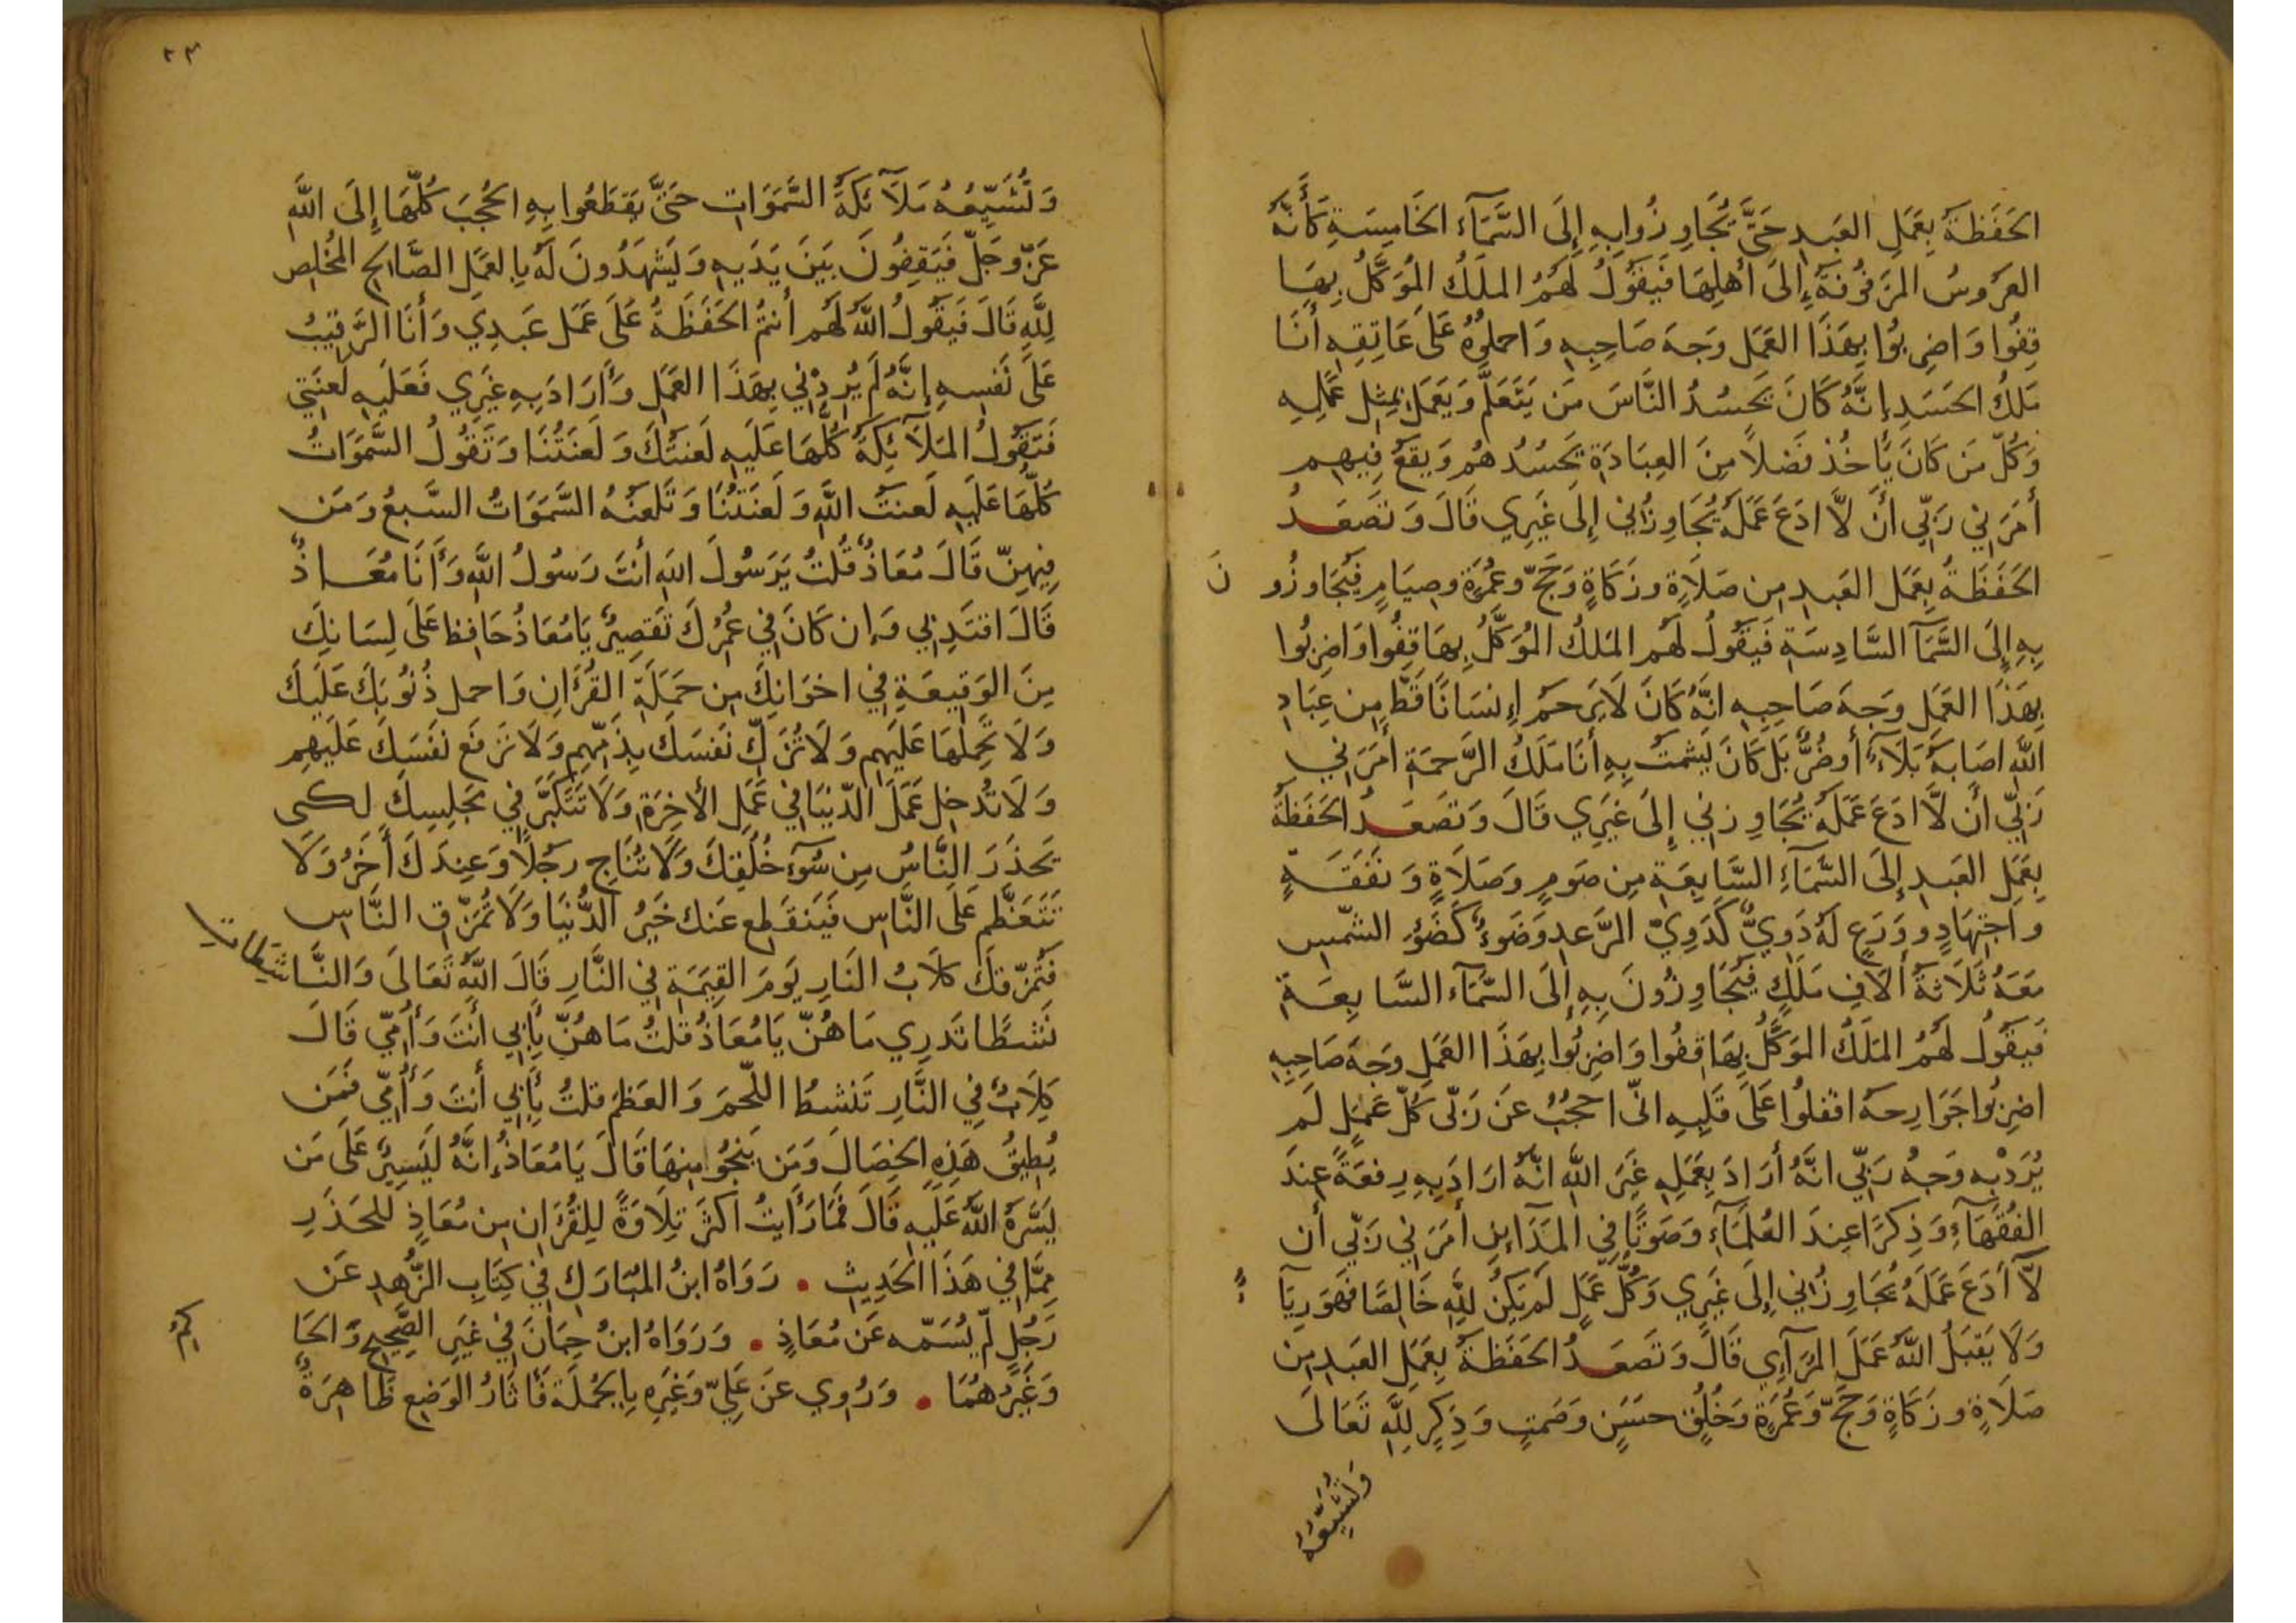 الحَفَظَةُ بِعَمَلِ العَبدِ حَتَّى تُجَاوِزُوا بِهِ إِلَى السَّمَآءِ الخَامِسَةِ كَأَنَّهُ
العَرُوسُ المَزفُوفَةُ إِلَى أَهلِهَا فَيَقُولُ لَهُمُ المَلَكُ المُوَكَّلُ بِهَا
قِفُوا وَاضرِبُوا بِهَذَا العَمَلِ وَجهَ صَاحِبِهِ وَاحمِلُوهُ عَلَى عَاتِقِهِ أَنَا
مَلَكُ الحَسَدِ إِنَّهُ كَانَ يَحسُدُ النَّاسَ مَن يَتَعَلَّمُ وَيَعمَلُ بِمِثلِ عَمَلِهِ
وَكُلّ مَن كَانَ يَأخُذ فَضلاً مِنَ العِبَادَةِ يَحسُدُهُم وَيَقَعُ فِيهِم
أَمَرَنِي رَبِّي أَن لاَّ ادَعَ عَمَلَهُ يُجَاوِزُنِي إِلَى غَيرِي قَالَ وَتَصعَدُ
الحَفَظَةُ بِعَمَلِ العَبدِ مِن صَلاَةٍ وزَكَاةٍ وَحَجّ وعُمرَةٍ وصِيَامٍ فَيُجَاوِزُونَ
بِهِ إِلَى السَّمَآ السَّادِسَةِ فَيَقُولُ لَهُم المَلَكُ المُوَكَّلُ بِهَا قِفُوا وَاضرِبُوا
بِهَذَا العَمَلِ وَجهَ صَاحِبِهِ انَّهُ كَانَ لاَ يَرحَمُ إِنسَانًا قَطُّ مِن عِبَادِ
اللَّهِ اصَابَهُ بَلاَءٌ أَو ضُرٌّ بَل كَانَ يَشمتُ بِهِ أَنَا مَلَكُ الرَّحمَةِ أَمَرَنِي
رَبِّي أَن لاَّ ادَعَ عَمَلَهُ يُجَاوِزنِي إِلَى غَيرِي قَالَ وَتَصعَدُ الحَفَظَةُ
بِعَمَلِ العَبدِ إِلَى السَّمَآءِ السَّابِعَةِ مِن صَومٍ وَصَلاَةٍ وَنَفَقَةٍ
واجتِهَادٍ ووَرَعٍ لَهُ دَوِيٌّ كَدَوِيّ الرَّعدِ وَضَوءٌ كَضَوءِ الشَّمسِ
مَعَهُ ثَلاَثَةُ أَلاَفِ مَلَكٍ فَيُجَاوِزُونَ بِهِ إِلَى السَّمَآءِ السَّابِعَةِ
فَيَقُولُ لَهُمُ المَلَكُ المُوَكَّلُ بِهَا قِفُوا وَاضرِبُوا بِهَذَا العَمَلِ وَجهَ صَاحِبِهِ
اضرِبُوا جَوَارِحَهُ اقفلُوا عَلَى قَلبِهِ انّي احجُبُ عَن رَبّي كُلّ عَمَلٍ لَم
يُرَدْ بِهِ وَجهُ رَبِّي انَّهُ أَرَادَ بِعَمَلِهِ غَيرَ اللَّهِ انَّهُ ارَادَ بِهِ رِفعَةً عِندَ
الفُقَهَآءِ وَذِكرًا عِندَ العُلَمَآءِ وَصَوتًا فِي المَدَآئِنِ أَمَرَنِي رَبّي أَن
لاَّ أَدَعَ عَمَلَهُ يُجَاوِزُنِي إِلَى غَيرِي وَكُلُّ عَمَلٍ لَم يَكُن لِلَّهِ خَالِصًا فَهُوَ رِيَآءٌ
وَلاَ يَقبَلُ اللَّهُ عَمَلَ المُرَآئِي قَالَ وَتَصعَدُ الحَفَظَةُ بِعَمَلِ العَبدِ مِن
صَلاَةٍ وزَكَاةٍ وَحَجّ وَعُمرَةٍ وَخُلُقٍ حسَنٍ وصَمتٍ وَذِكرٍ لِلَّهِ تَعَالَى
وَتُشَيِّعُهُ
٢٣
وَتُشَيِّعُهُ مَلاَئِكَةُ السَّمَوَاتِ حَتَّى يَقطَعُوا بِهِ الحُجُبَ كُلَّهَا إِلَى اللَّهِ
عَزّ وَجَلّ فَيَقِفُونَ بَينَ يَدَيهِ وَيَشهَدُونَ لَهُ بِالعَمَلِ الصَّالِحِ المُخلِصِ
لِلَّهِ قَالَ فَيَقُولُ اللَّهُ لَهُم أَنتُمُ الحَفَظَةُ عَلَى عَمَلِ عَبدِي وَأَنَا الرَّقِيبُ
عَلَى نَفسِهِ إِنَّهُ لَم يُرِدْنِي بِهَذَا العَمَلِ وَأَرَادَ بِهِ غَيرِي فَعَلَيهِ لَعنَتِي
فَتَقُولُ المَلاَئِكَةُ كُلُّهَا عَلَيهِ لَعنَتُكَ وَلَعنَتُنَا وَتَقُولُ السَّمَوَاتُ
كُلُّهَا عَلَيهِ لَعنَتُ اللَّهِ وَلَعنَتُنَا وَتَلعَنُهُ السَّمَوَاتُ السَّبعُ وَمَن
فِيهِنّ قَالَ مُعَاذٌ قُلتُ يَرَسُولَ اللَّهِ أَنتَ رَسُولُ اللَّهِ وَأَنَا مُعَاذٌ
قَالَ اقتَدِ بِي وَإِن كَانَ فِي عُمرِكَ تَقصِيرٌ يَا مُعَاذُ حَافِظ عَلَى لِسَانِكَ
مِنَ الوَقِيعَةِ فِي اخوَانِكَ مِن حَمَلَةِ القُرَانِ وَاحمِل ذُنُوبَكَ عَلَيكَ
وَلاَ تَحمِلهَا عَلَيهِم وَلاَ تُزَكِّ نَفسَكَ بِذَمِّهِم وَلاَ تَرفَع نَفسَكَ عَلَيهِم
وَلاَ تُدخِل عَمَلَ الدّنيَا فِي عَمَلِ الأَخِرَةِ وَلاَ تَتَكَبَّر فِي مَجلِسِكَ لكي
يَحذَرَ النَّاسُ مِن سُوءِ خُلُقِكَ وَلاَ تُنَاجِ رجُلاً وَعِندَكَ أَخَرُ وَلاَ
تَتَعَظَّم عَلَى النَّاسِ فَيَنقَطِع عَنكَ خَيرُ الدُّنيَا وَلاَ تُمَزِّقِ النَّاسَ
فَتُمَزّقَكَ كِلاَبُ النَارِ يَومَ القِيَمَةِ فِي النَّارِ قَالَ اللَّهُ تَعَالَى وَالنَّاشِطَاتِ
نَشطًا تَدرِي مَا هُنّ يَا مُعَاذُ قُلتُ مَا هُنّ بِأَبِي أَنتَ وَأُمّي قَالَ
كِلاَبٌ فِي النَّارِ تَنشطُ اللَّحمَ وَالعَظمَ قُلتُ بِأَبِي أَنتَ وَأُمِّي فَمَن
يُطِيقُ هَذِهِ الخِصَالَ وَمَن يَنجُو مِنهَا قَالَ يَا مُعَاذُ إِنَّهُ لَيَسِيرٌ عَلَى مَن
يَسَّرَهُ اللَّهُ عَلَيهِ قَالَ فَمَا رَأَيتُ اكثَرَ تِلاَوَةً لِلقُرَانِ مِن مُعَاذٍ لِلحَذَرِ
مِمَّا فِي هَذَا الحَدِيثِ . رَوَاهُ ابنُ المُبَارَكِ فِي كِتَابِ الزُّهدِ عَن
رَجُلٍ لّم يُسَمّه عَن مُعَاذٍ . وَرَوَاهُ ابنُ حِبَانَ فِي غَيرِ الصَّحِيحِ وَالحَاكِمُ
وَغَيرُهُمَا . وَرُوِي عَن عَلِيّ وَغَيرِهِ بِالجُملَةِ فَأثَارُ الوَضعِ ظَاهِرَةٌ